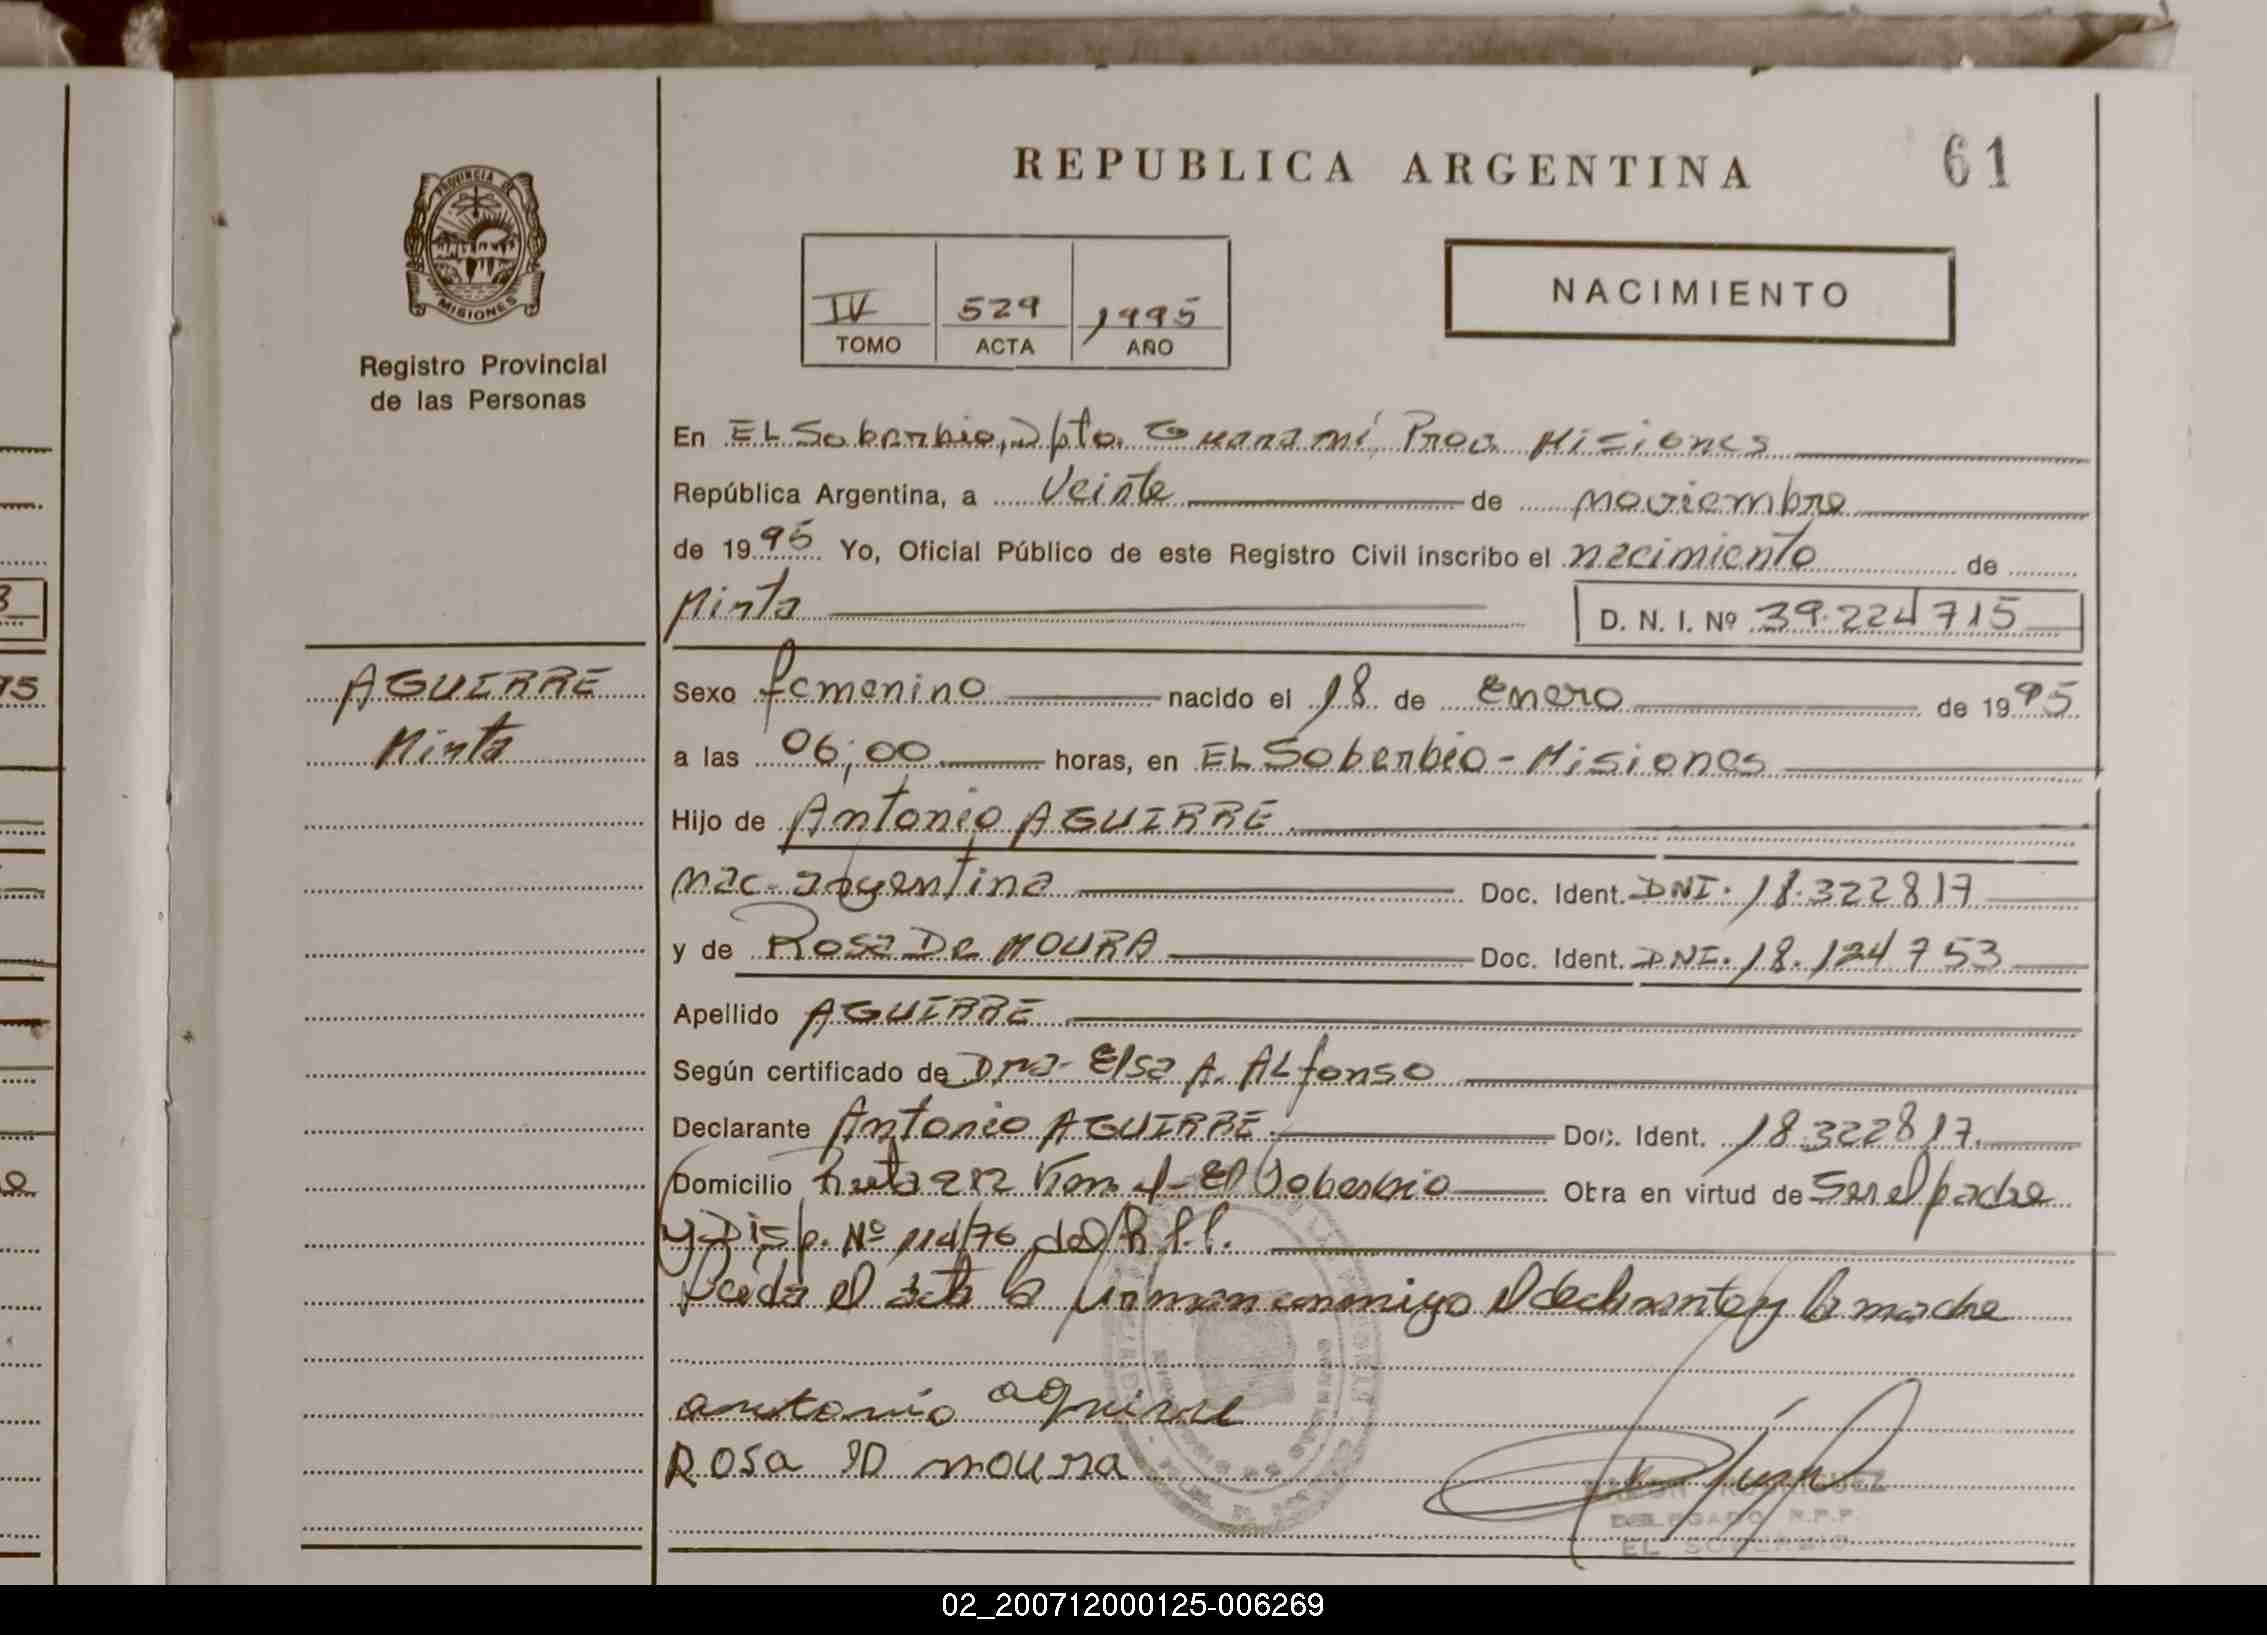 REPUBLICA ARGENTINA
61
PROVINCIA DE
MISIONES
Registro Provincial
de las Personas
IV 529 1995
TOMO ACTA AÑO
NACIMIENTO
En EL Soberbio, Dpto. Guaraní, Prov. Misiones
República Argentina, a Veinte de noviembre
de 1995 Yo, Oficial Público de este Registro Civil inscribo el nacimiento de
Mirta
D. N. I. Nº 39.224715
AGUIRRE
Mirta
Sexo femenino nacido el 18 de Enero de 1995
a las 06;00 horas, en EL Soberbio - Misiones
Hijo de Antonio AGUIRRE
nac. argentina Doc. Ident. DNI. 18.322817
y de Rosa De MOURA Doc. Ident. DNI. 18.124753
Apellido AGUIRRE
Según certificado de Dra. Elsa A. ALfonso
Declarante Antonio AGUIRRE Doc. Ident. 18.322817.
Domicilio Ruta 212 Km 1 - El Soberbio Obra en virtud de Ser el padre
y Disp. Nº 114/76 del
Leída el acta la firman conmigo el declarante y la madre
antonio aguirre
ROSA D moura
DELEGADO R.P.P.
EL SOBERBIO
02_200712000125-006269